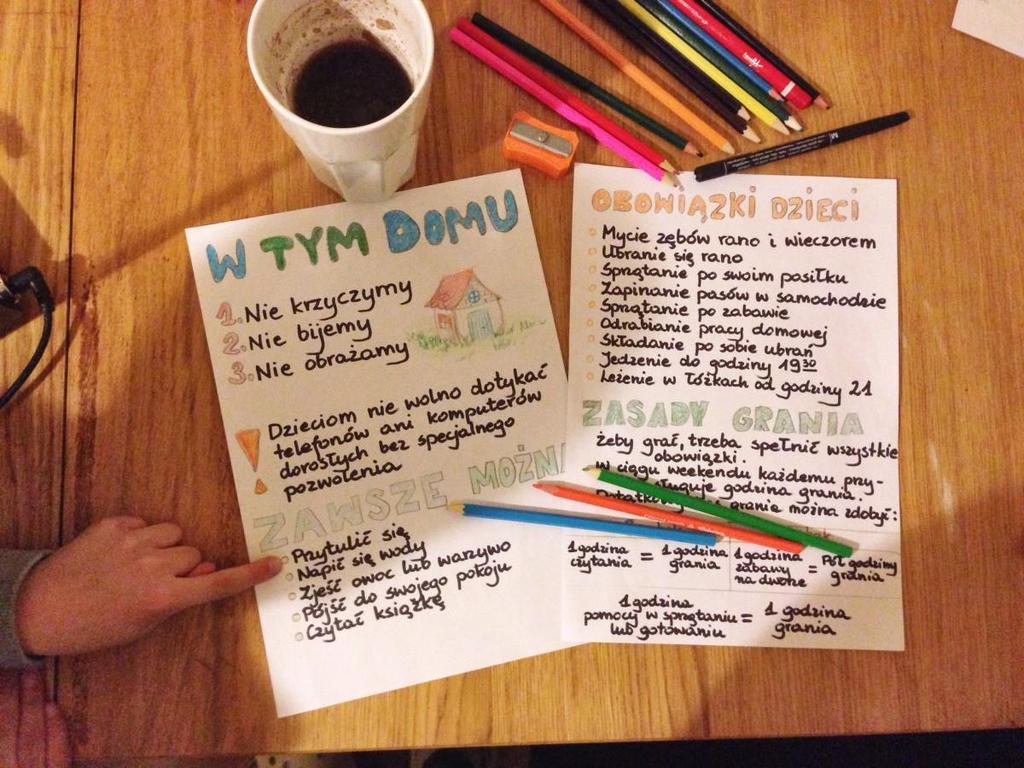 W TYM DOMU
1. Nie krzyczymy
2. Nie bijemy
3. Nie obrażamy
! Dzieciom nie wolno dotykać
telefonów ani komputerów
dorosłych bez specjalnego
pozwolenia
ZAWSZE MOŻNA
Przytulić się
Napić się wody
Zjeść owoc lub warzywo
Pójść do swojego pokoju
Czytać książkę
OBOWIĄZKI DZIECI
Mycie zębów rano i wieczorem
Ubranie się rano
Sprzątanie po swoim posiłku
Zapinanie pasów w samochodzie
Sprzątanie po zabawie
Odrabianie pracy domowej
Składanie po sobie ubrań
Jedzenie do godziny 19 30
Leżenie w łóżkach od godziny 21
ZASADY GRANIA
żeby grać, trzeba spełnić wszystkie
obowiązki.
W ciągu weekendu każdemu przy-
sługuje godzina grania.
Dodatkowy granie można zdobyć:
1 godzina czytania = 1 godzina grania
1 godzina zabawy na dworze = Pół godziny grania
1 godzina pomocy w sprzątaniu lub gotowaniu = 1 godzina grania